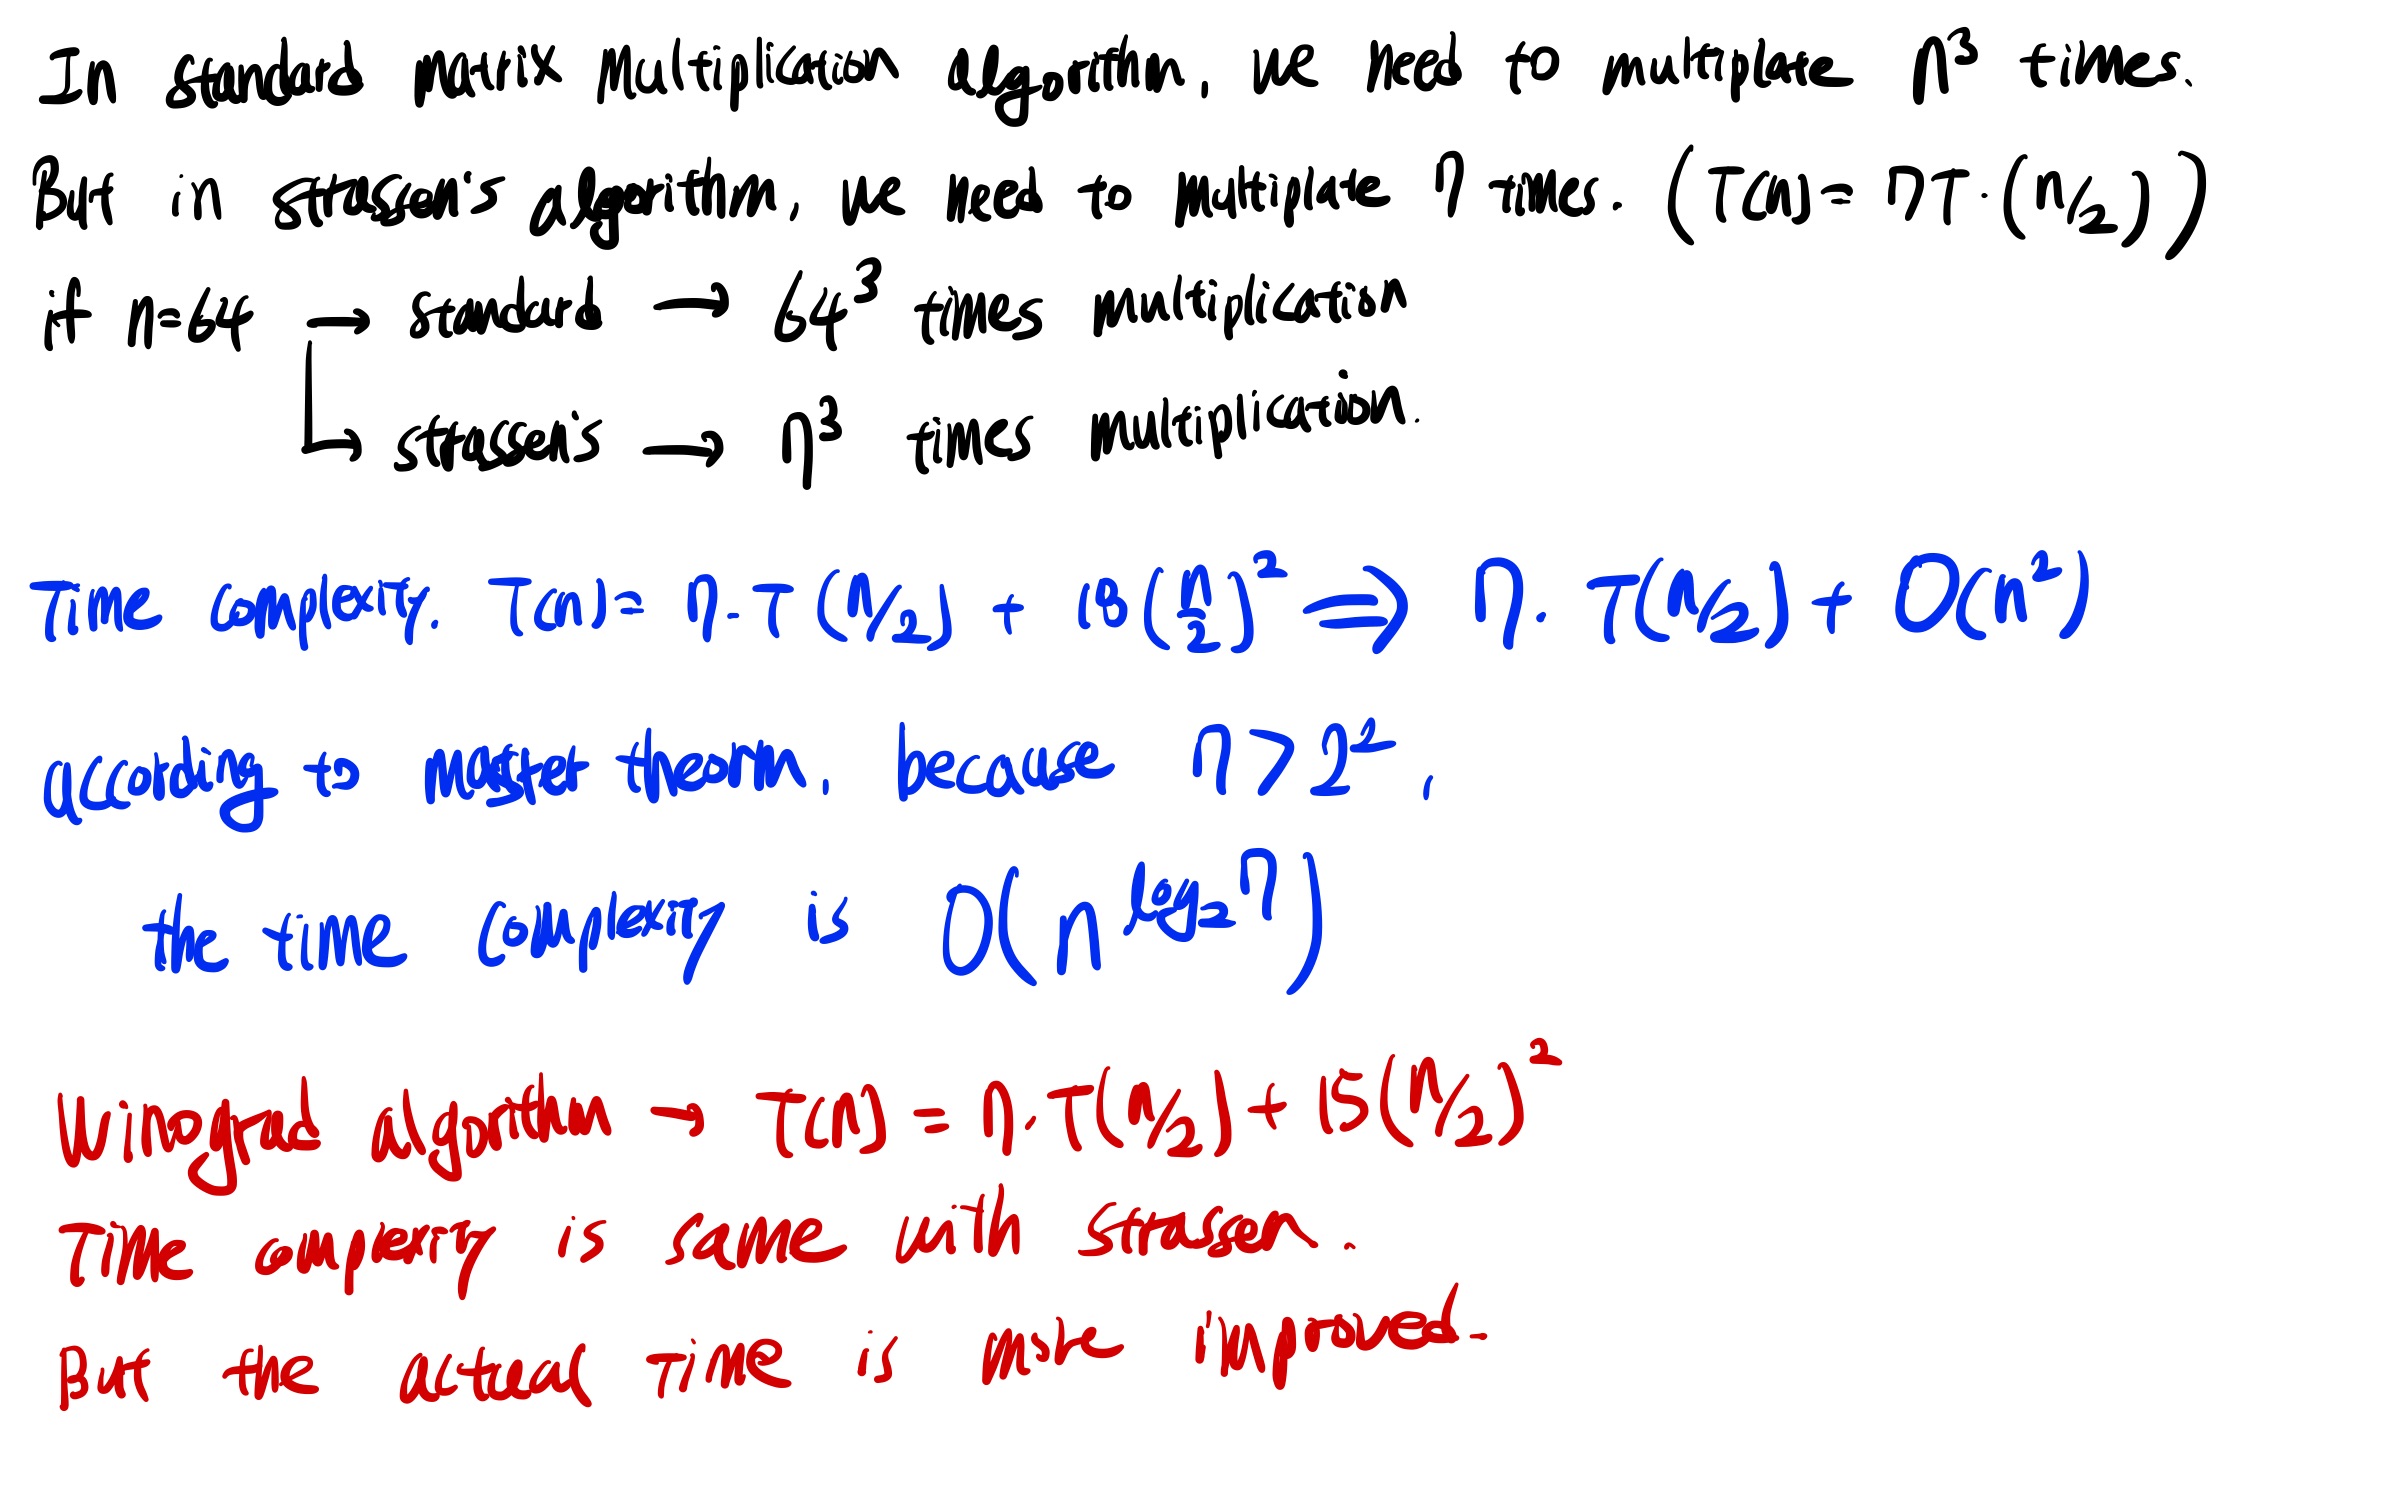 In standard matrix multiplication algorithm, we need to multiplate n³ times.
But in strassen's algorithm, we need to multiplate 7 times. (T(n) = 7T·(n/2))
if n=64 → standard → 64³ times multiplication
↳ strassen's → 7³ times multiplication.
Time complexity. T(n) = 7·T(n/2) + 18(n/2)² ⇒ 7·T(n/2) + O(n²)
according to master theorem, because 7>2²,
the time complexity is O(n^log₂7)
Winograd algorithm → T(n) = 7·T(n/2) + 15(n/2)²
Time complexity is same with strassen.
But the actual time is more improved.